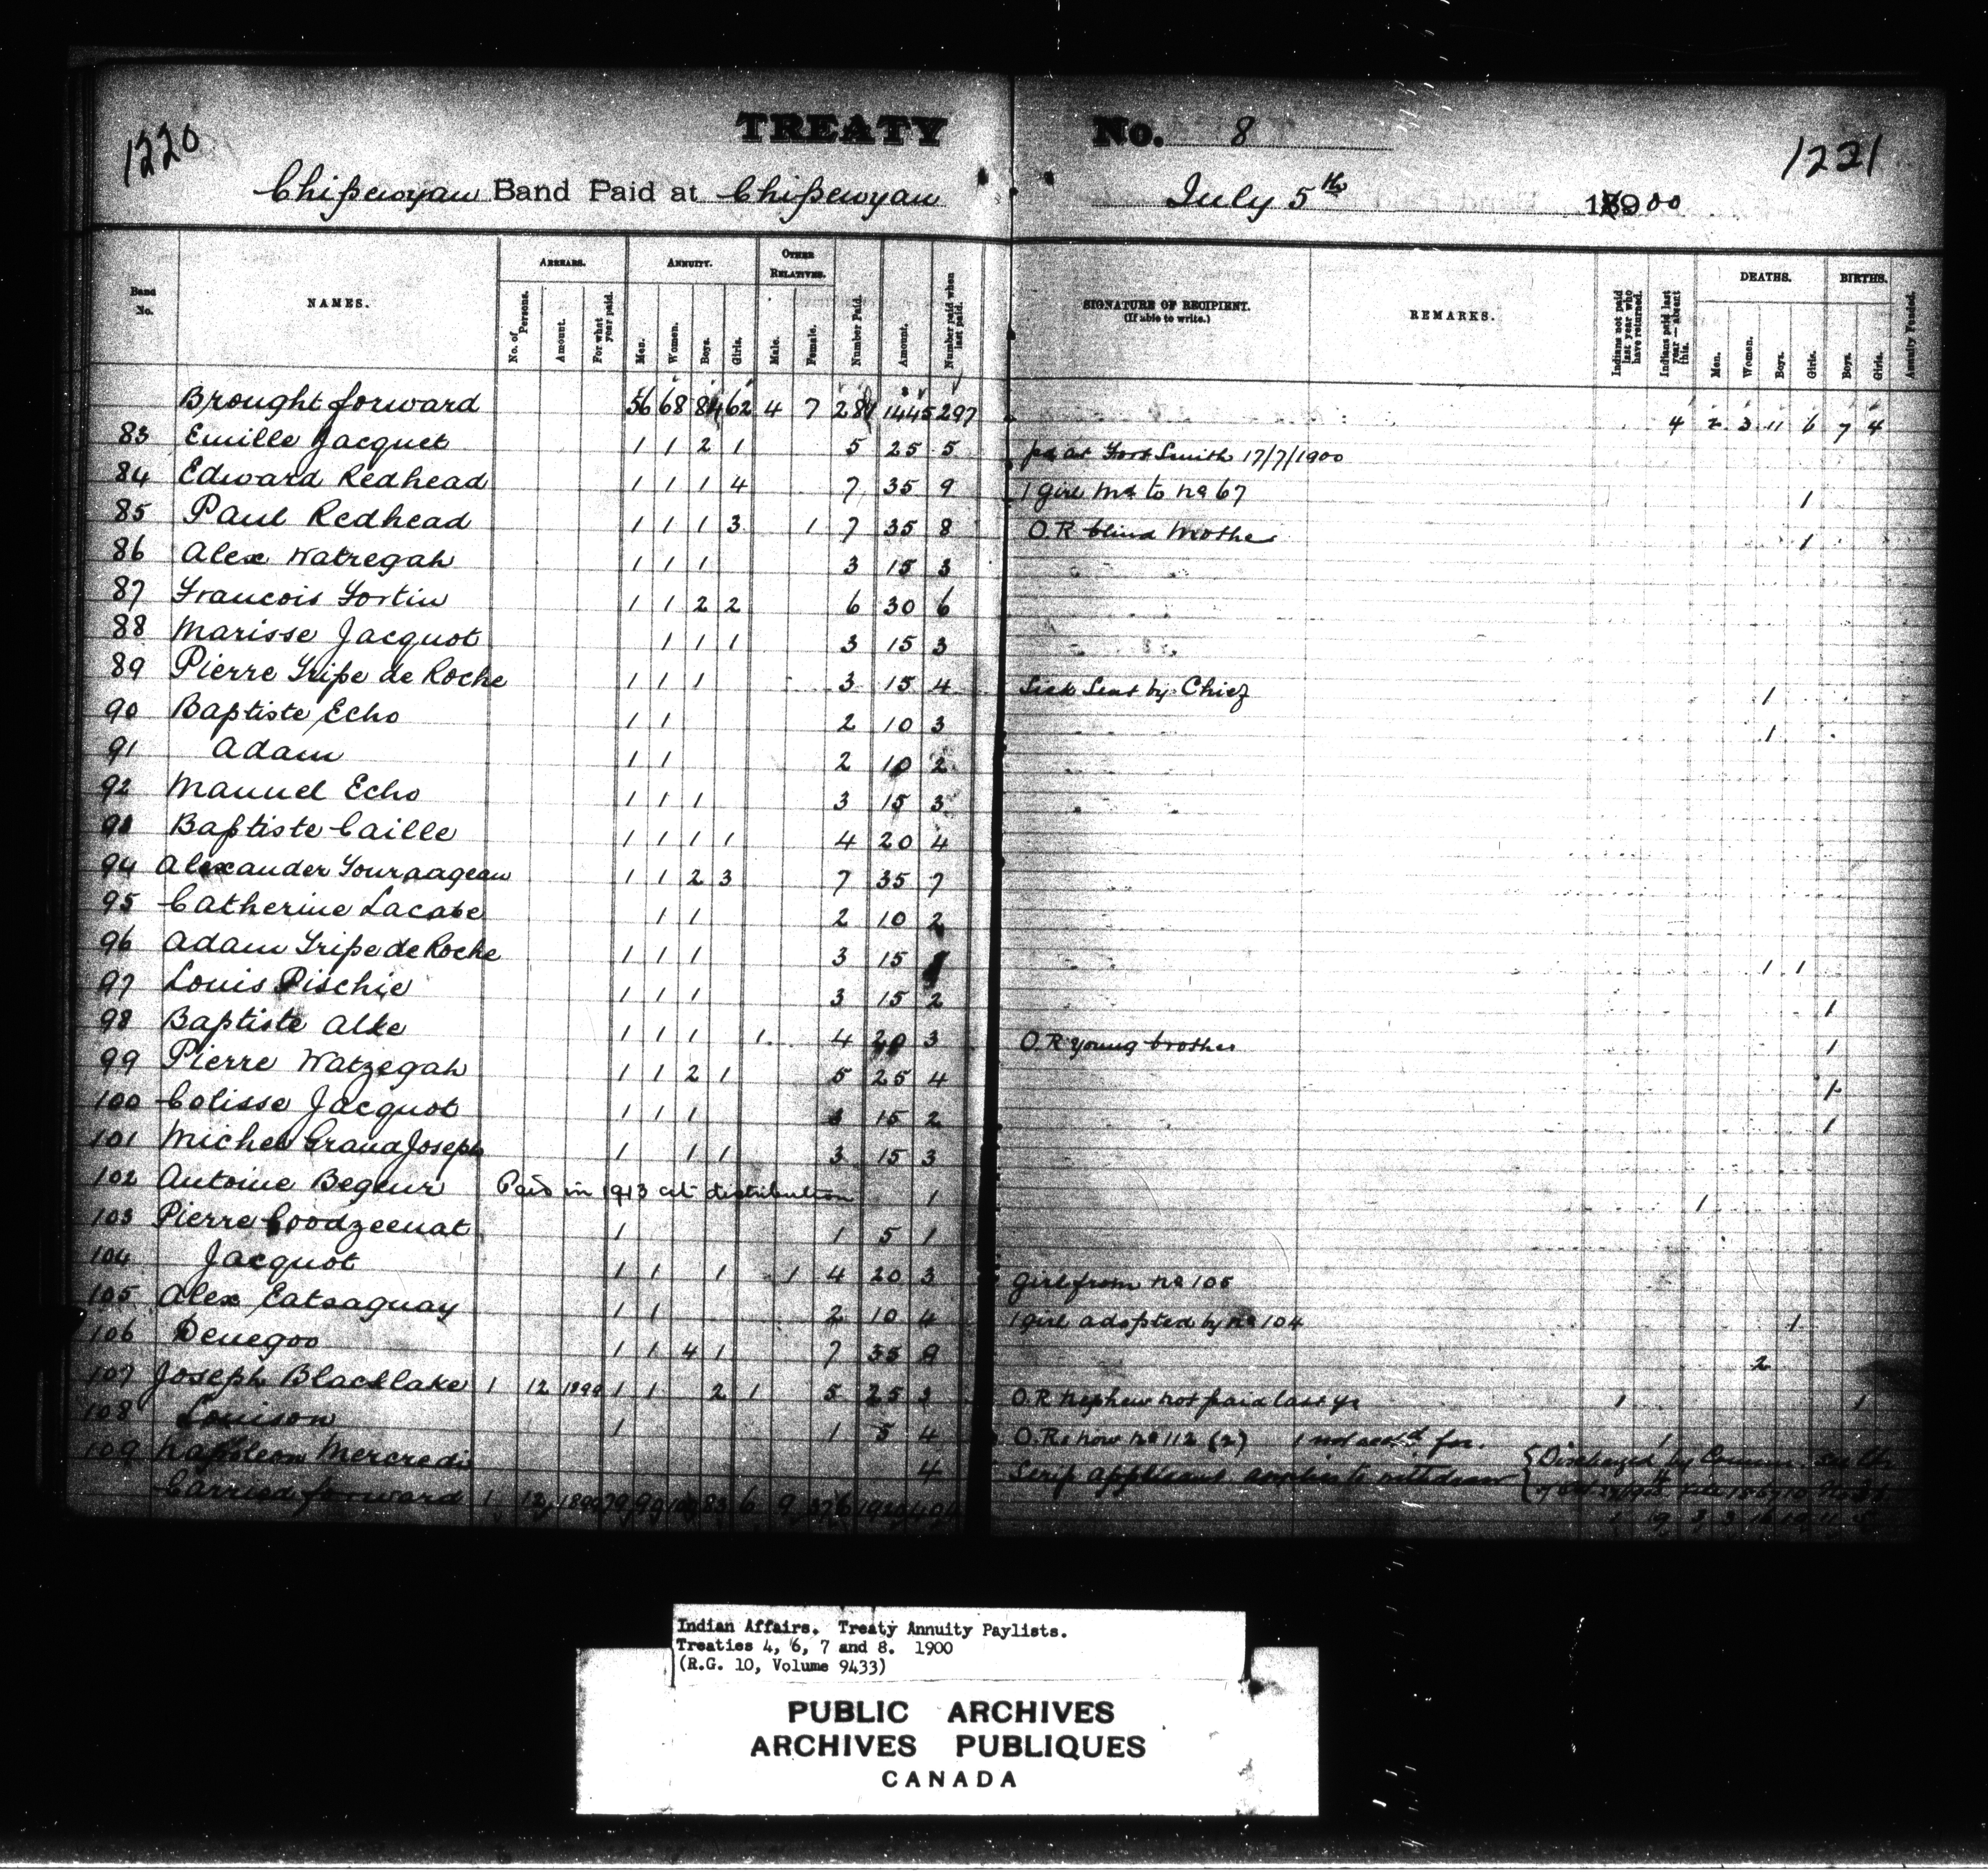 1220
TREATY No. 8
1221
Chipewyan Band Paid at Chipewyan July 5th 1900
Band No. NAMES. ARREARS. No. of Persons. Amount. For what year paid. ANNUITY. Men. Women. Boys. Girls. OTHER RELATIVES. Male. Female. Number Paid. Amount. Number paid when last paid. SIGNATURE OF RECIPIENT. (If able to write.) REMARKS. Indians not paid last year who have returned. Indians paid last year—absent this. DEATHS. Men. Women. Boys. Girls. BIRTHS. Boys. Girls. Annuity Funded.
Brought forward 56 68 84 62 4 7 281 1445 297 4 2 3 11 6 7 4
83 Emille Jacquet 1 1 2 1 5 25 5 pd at Fort Smith 17/7/1900
84 Edward Redhead 1 1 1 4 7 35 9 1 girl md to no 67 1
85 Paul Redhead 1 1 1 3 1 7 35 8 O.R blind mother 1
86 Alex Watzegah 1 1 1 3 15 3
87 Francois Fortin 1 1 2 2 6 30 6
88 Marisse Jacquot 1 1 1 3 15 3
89 Pierre Tripe de Roche 1 1 1 3 15 4 Sick Sent by Chief 1
90 Baptiste Echo 1 1 2 10 3 1
91 Adam 1 1 2 10 2
92 Manuel Echo 1 1 1 3 15 3
93 Baptiste Caille 1 1 1 1 4 20 4
94 Alexander 1 1 2 3 7 35 7
95 Catherine Lacabe 1 1 2 10 2
96 Adam Tripe de Roche 1 1 1 3 15 1 1
97 Louis Pischie 1 1 1 3 15 2 1
98 Baptiste Alke 1 1 1 1 4 20 3 O.R young brother 1
99 Pierre Watzegah 1 1 2 1 5 25 4 1
100 Colisse Jacquot 1 1 1 3 15 2 1
101 Michel Grand Joseph 1 1 1 3 15 3
102 Antoine Begeur Paid in 1913 at distribution 1 1
103 Pierre Coodzeenat 1 1 5 1
104 Jacquot 1 1 1 1 4 20 3 girl from no 105
105 Alex Eatsaguay 1 1 2 10 4 1 girl adopted by no 104 1
106 Denegoo 1 1 4 1 7 35 9 2
107 Joseph Blacklake 1 12 1899 1 1 2 1 5 25 3 O.R nephew not paid last yr 1 1
108 Louison 1 1 5 4 O.Rs now no 112 (2) 1 not acctd for. 1
109 Napoleon Mercredi 4 Scrip applicant applies to withdraw Discharged by
Carried forward 1 12 1899 79 99 109 83 6 9 376 1920 404
Indian Affairs. Treaty Annuity Paylists.
Treaties 4, 6, 7 and 8. 1900
(R.G. 10, Volume 9433)
PUBLIC ARCHIVES
ARCHIVES PUBLIQUES
CANADA